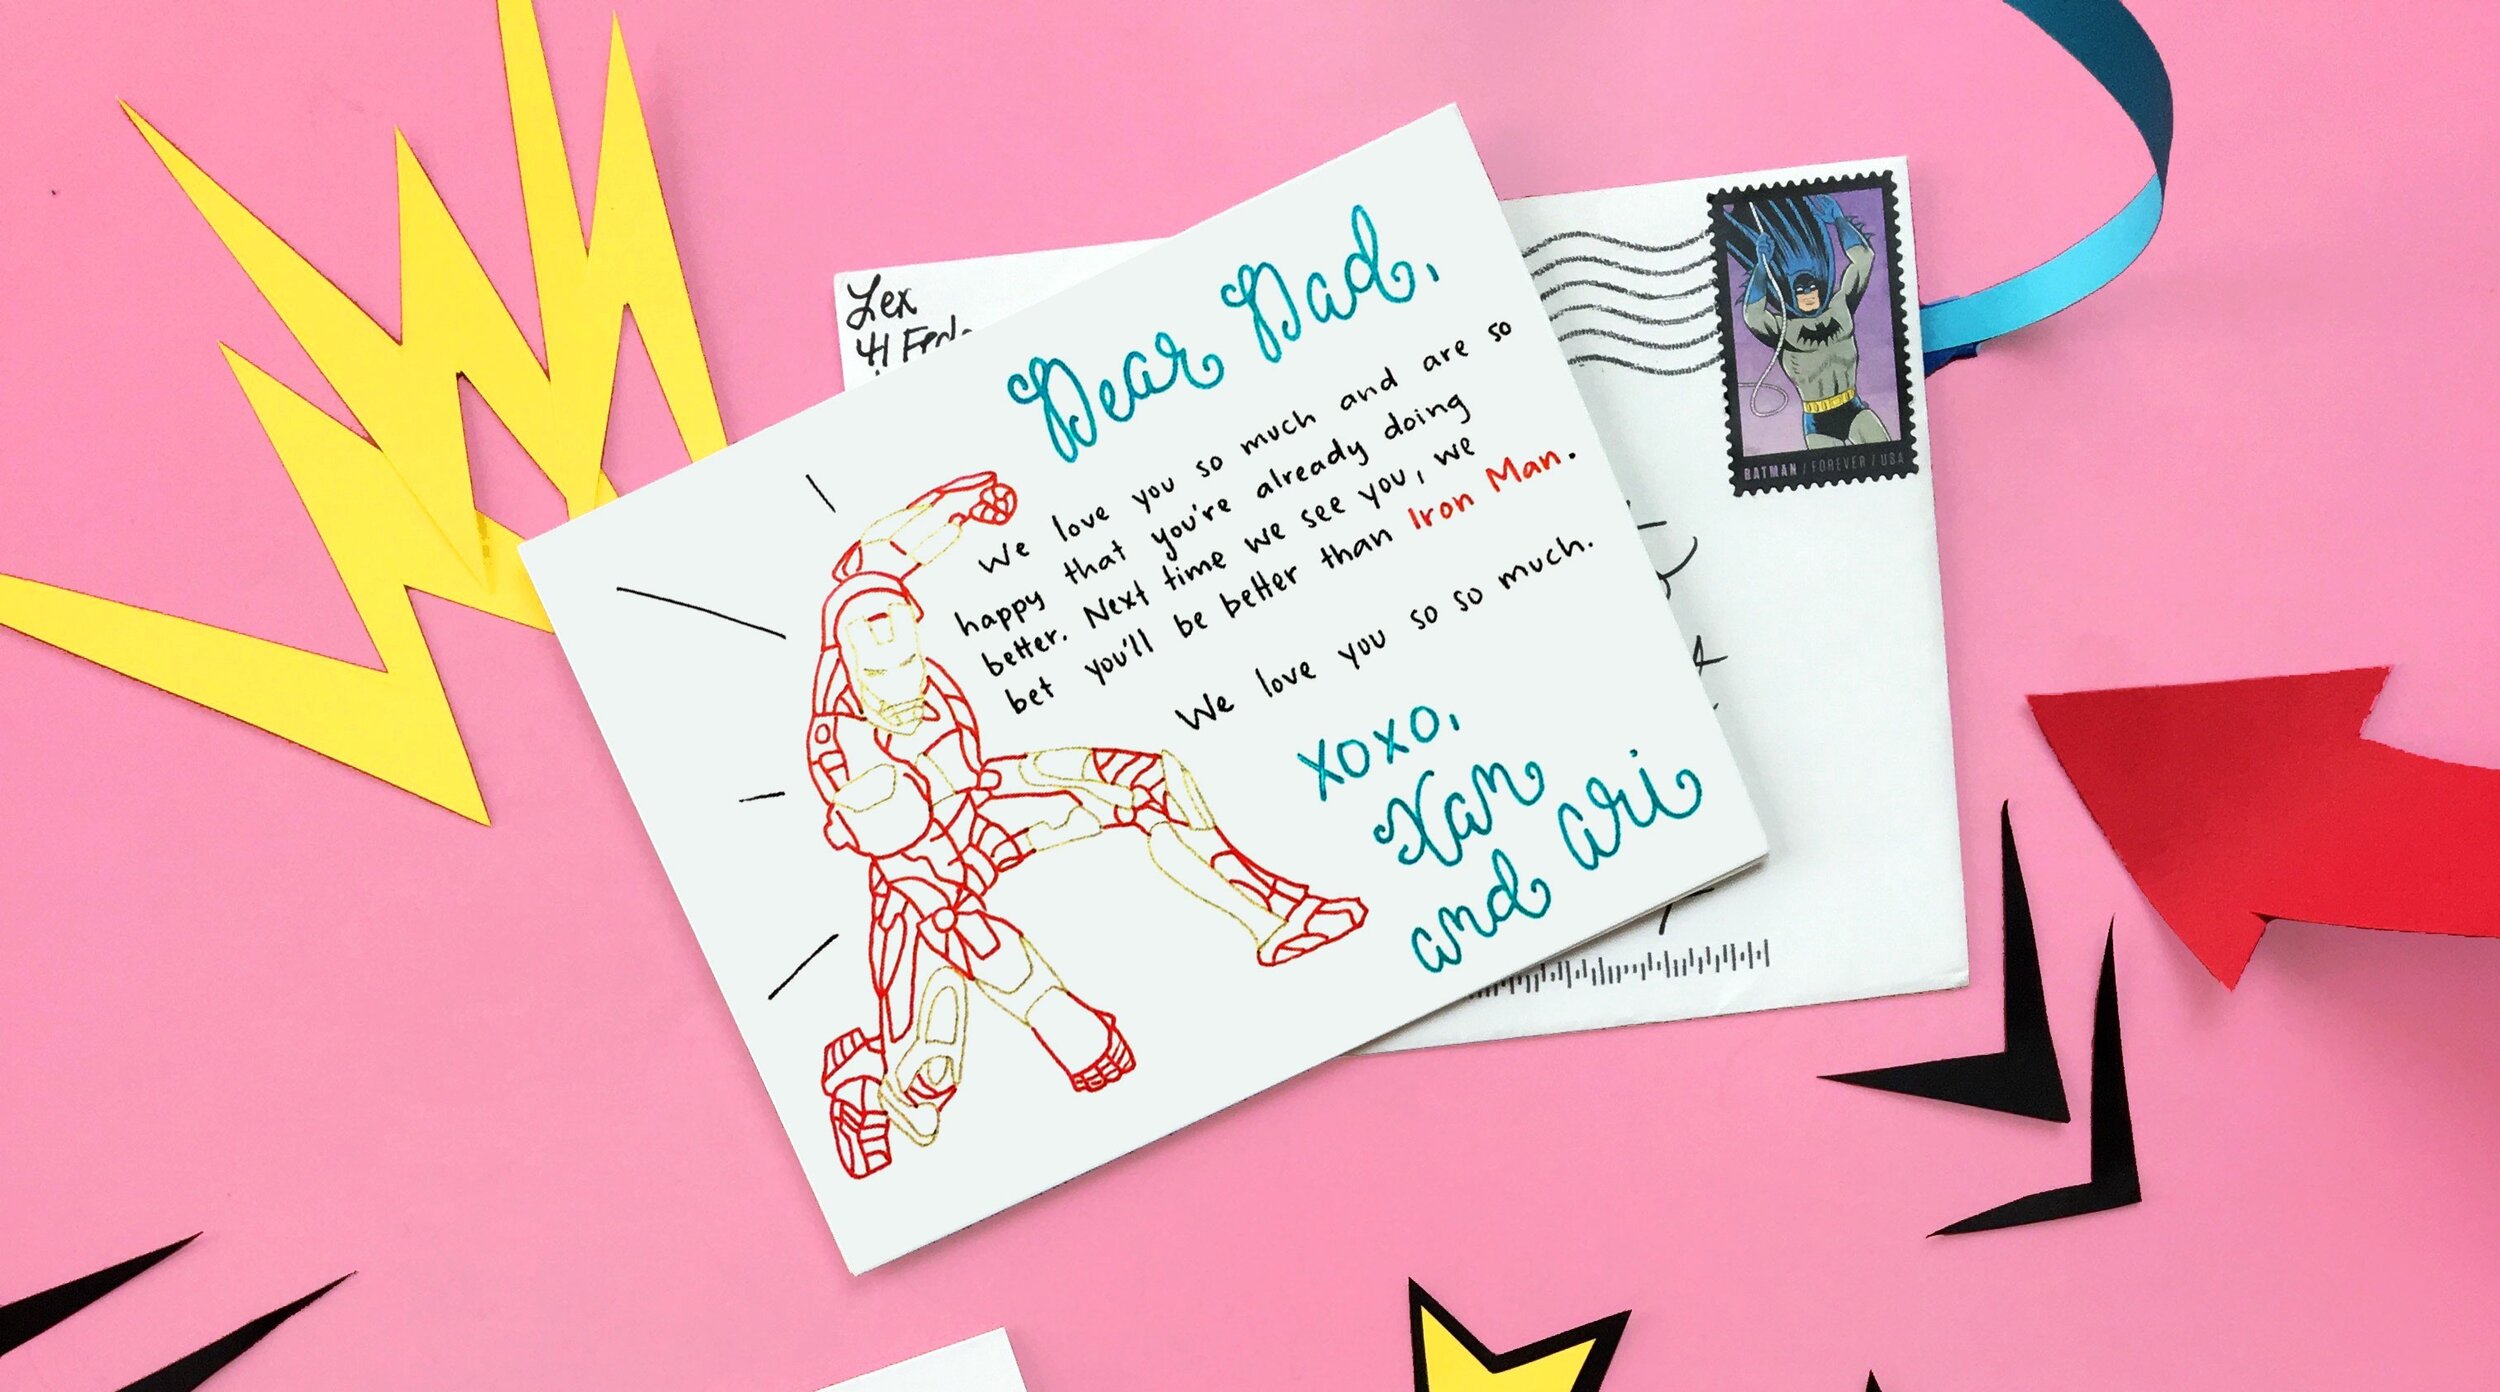 Lex
41
Dear Dad,
We love you so much and are so
happy that you're already doing
better. Next time we see you, we
bet you'll be better than Iron Man.
We love you so so much.
xoxo,
Xan
and Ari
BATMAN / FOREVER / USA